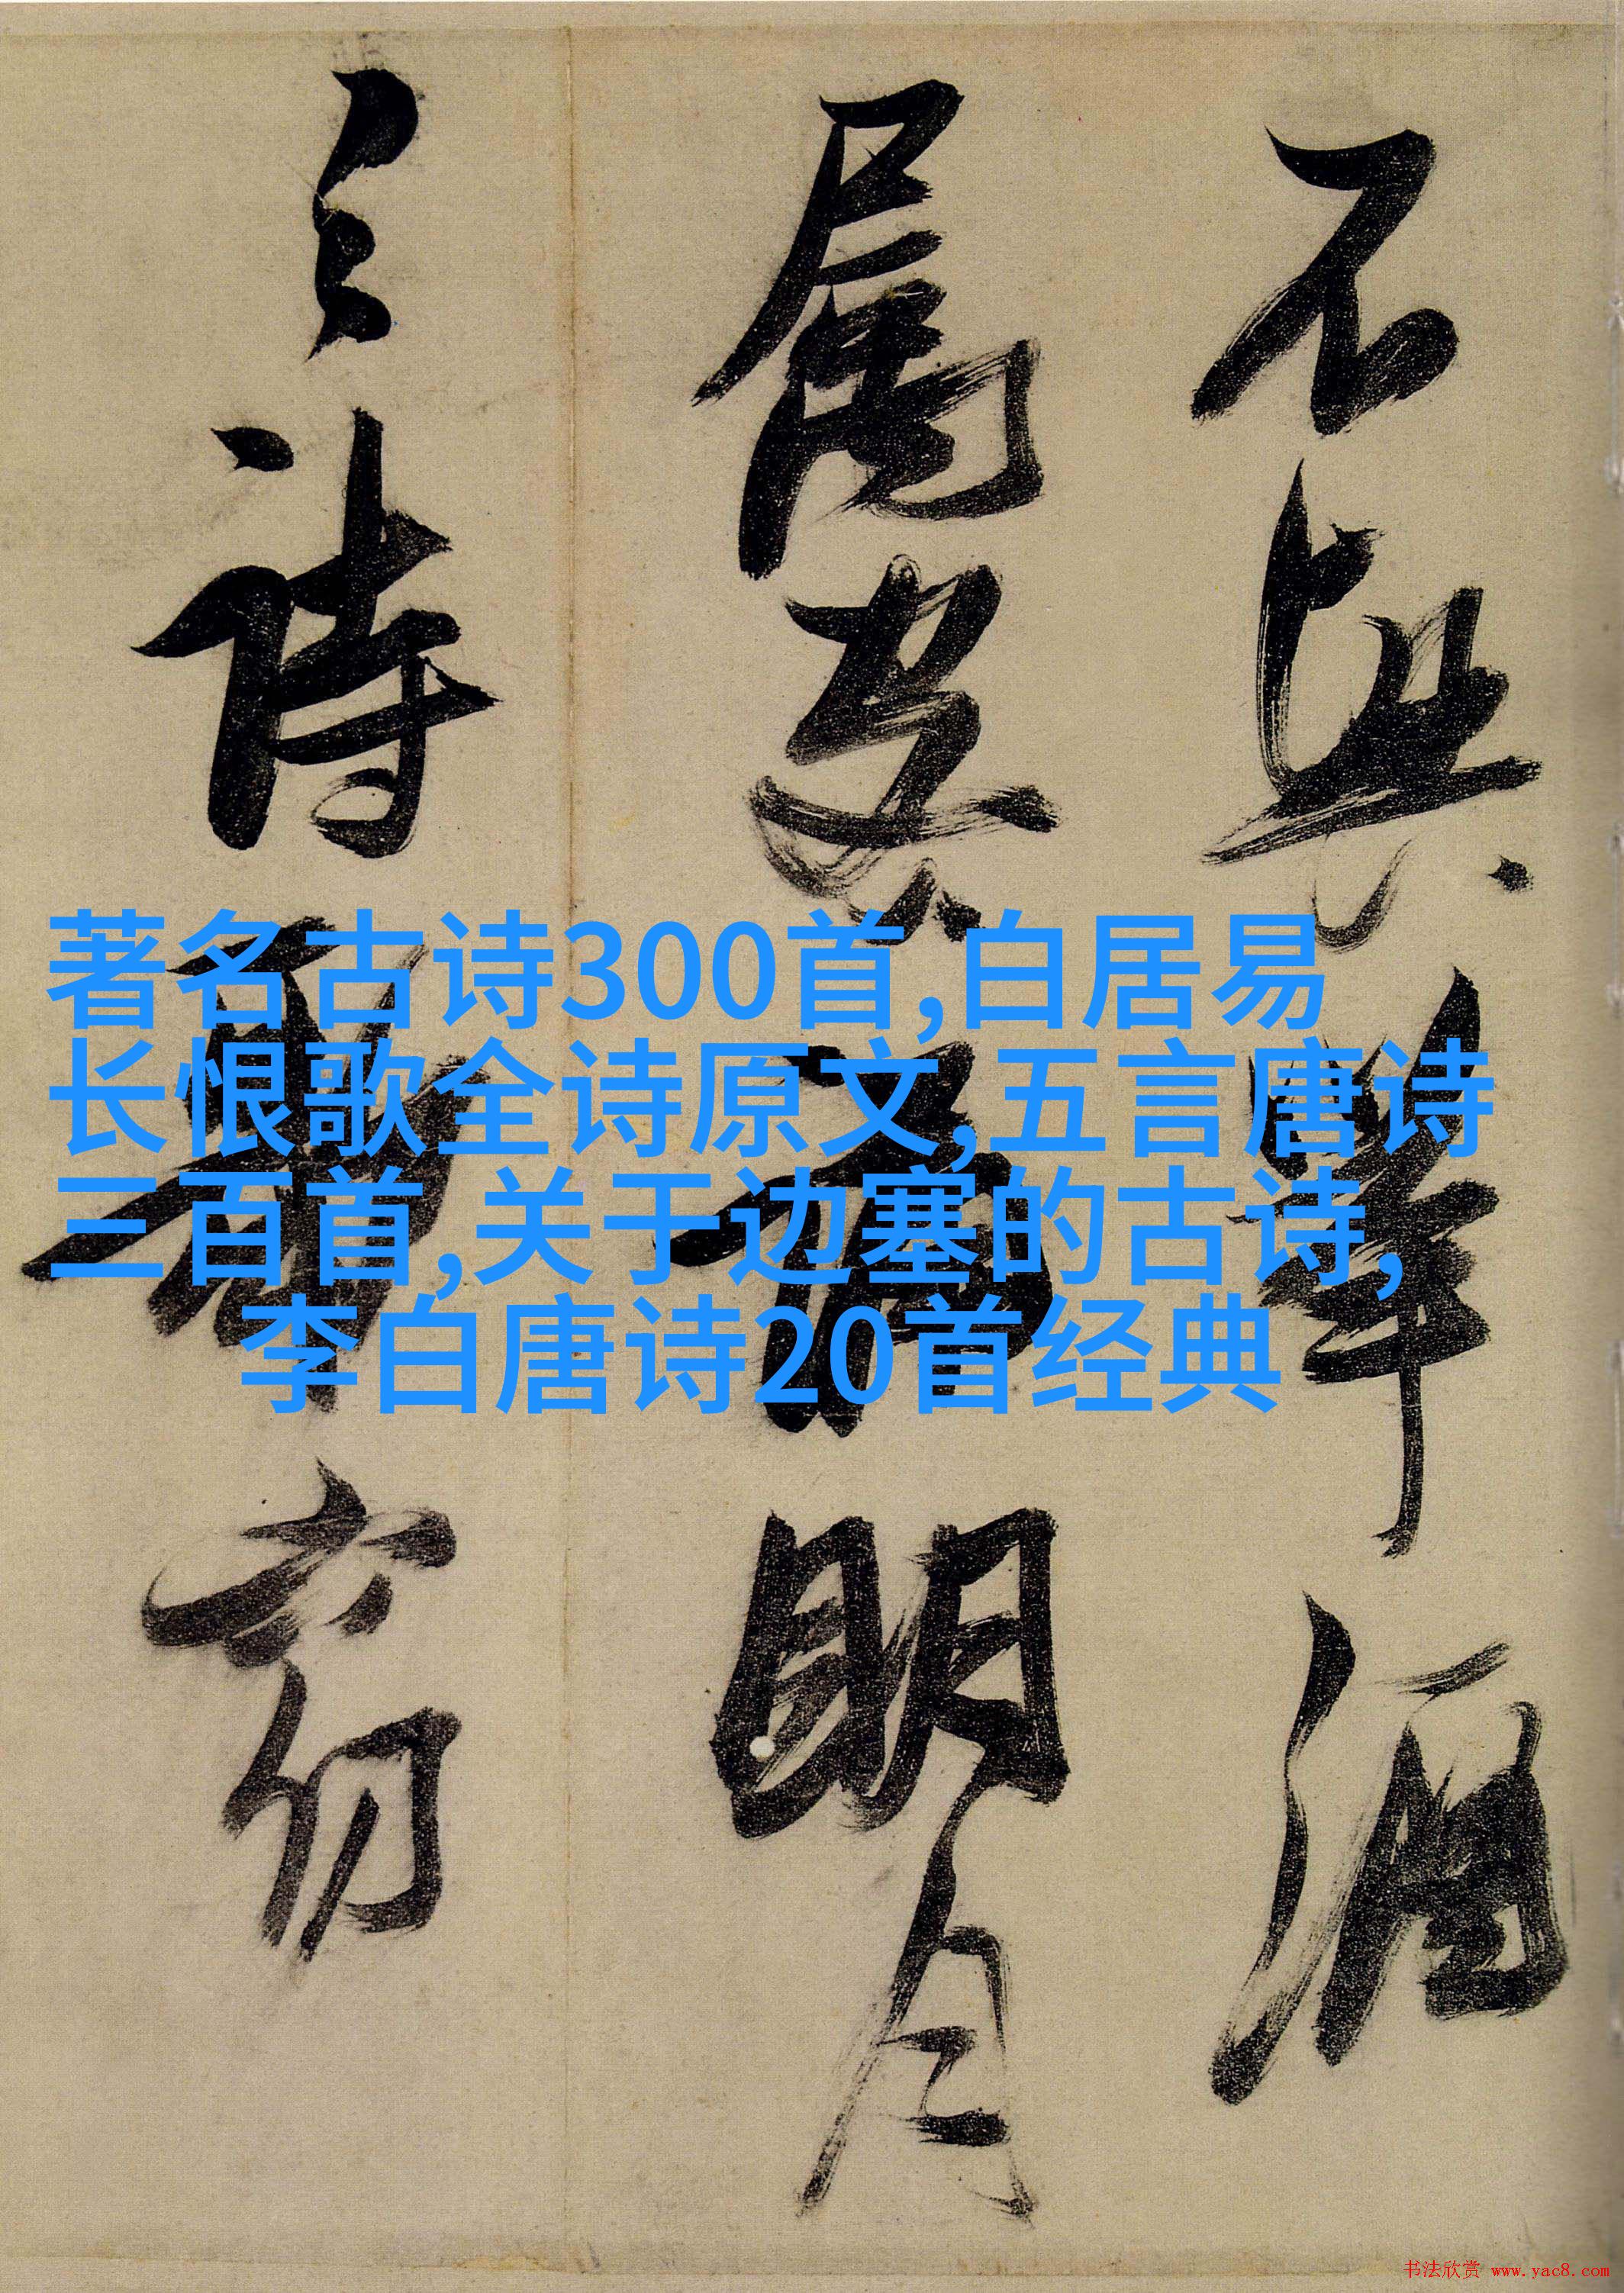 不兴举酒
属客诵明月
之诗歌窈
著名古诗300首,白居易
长恨歌全诗原文,五言唐诗
三百首,关于边塞的古诗,
李白唐诗20首经典
书法欣赏 www.yac8.com